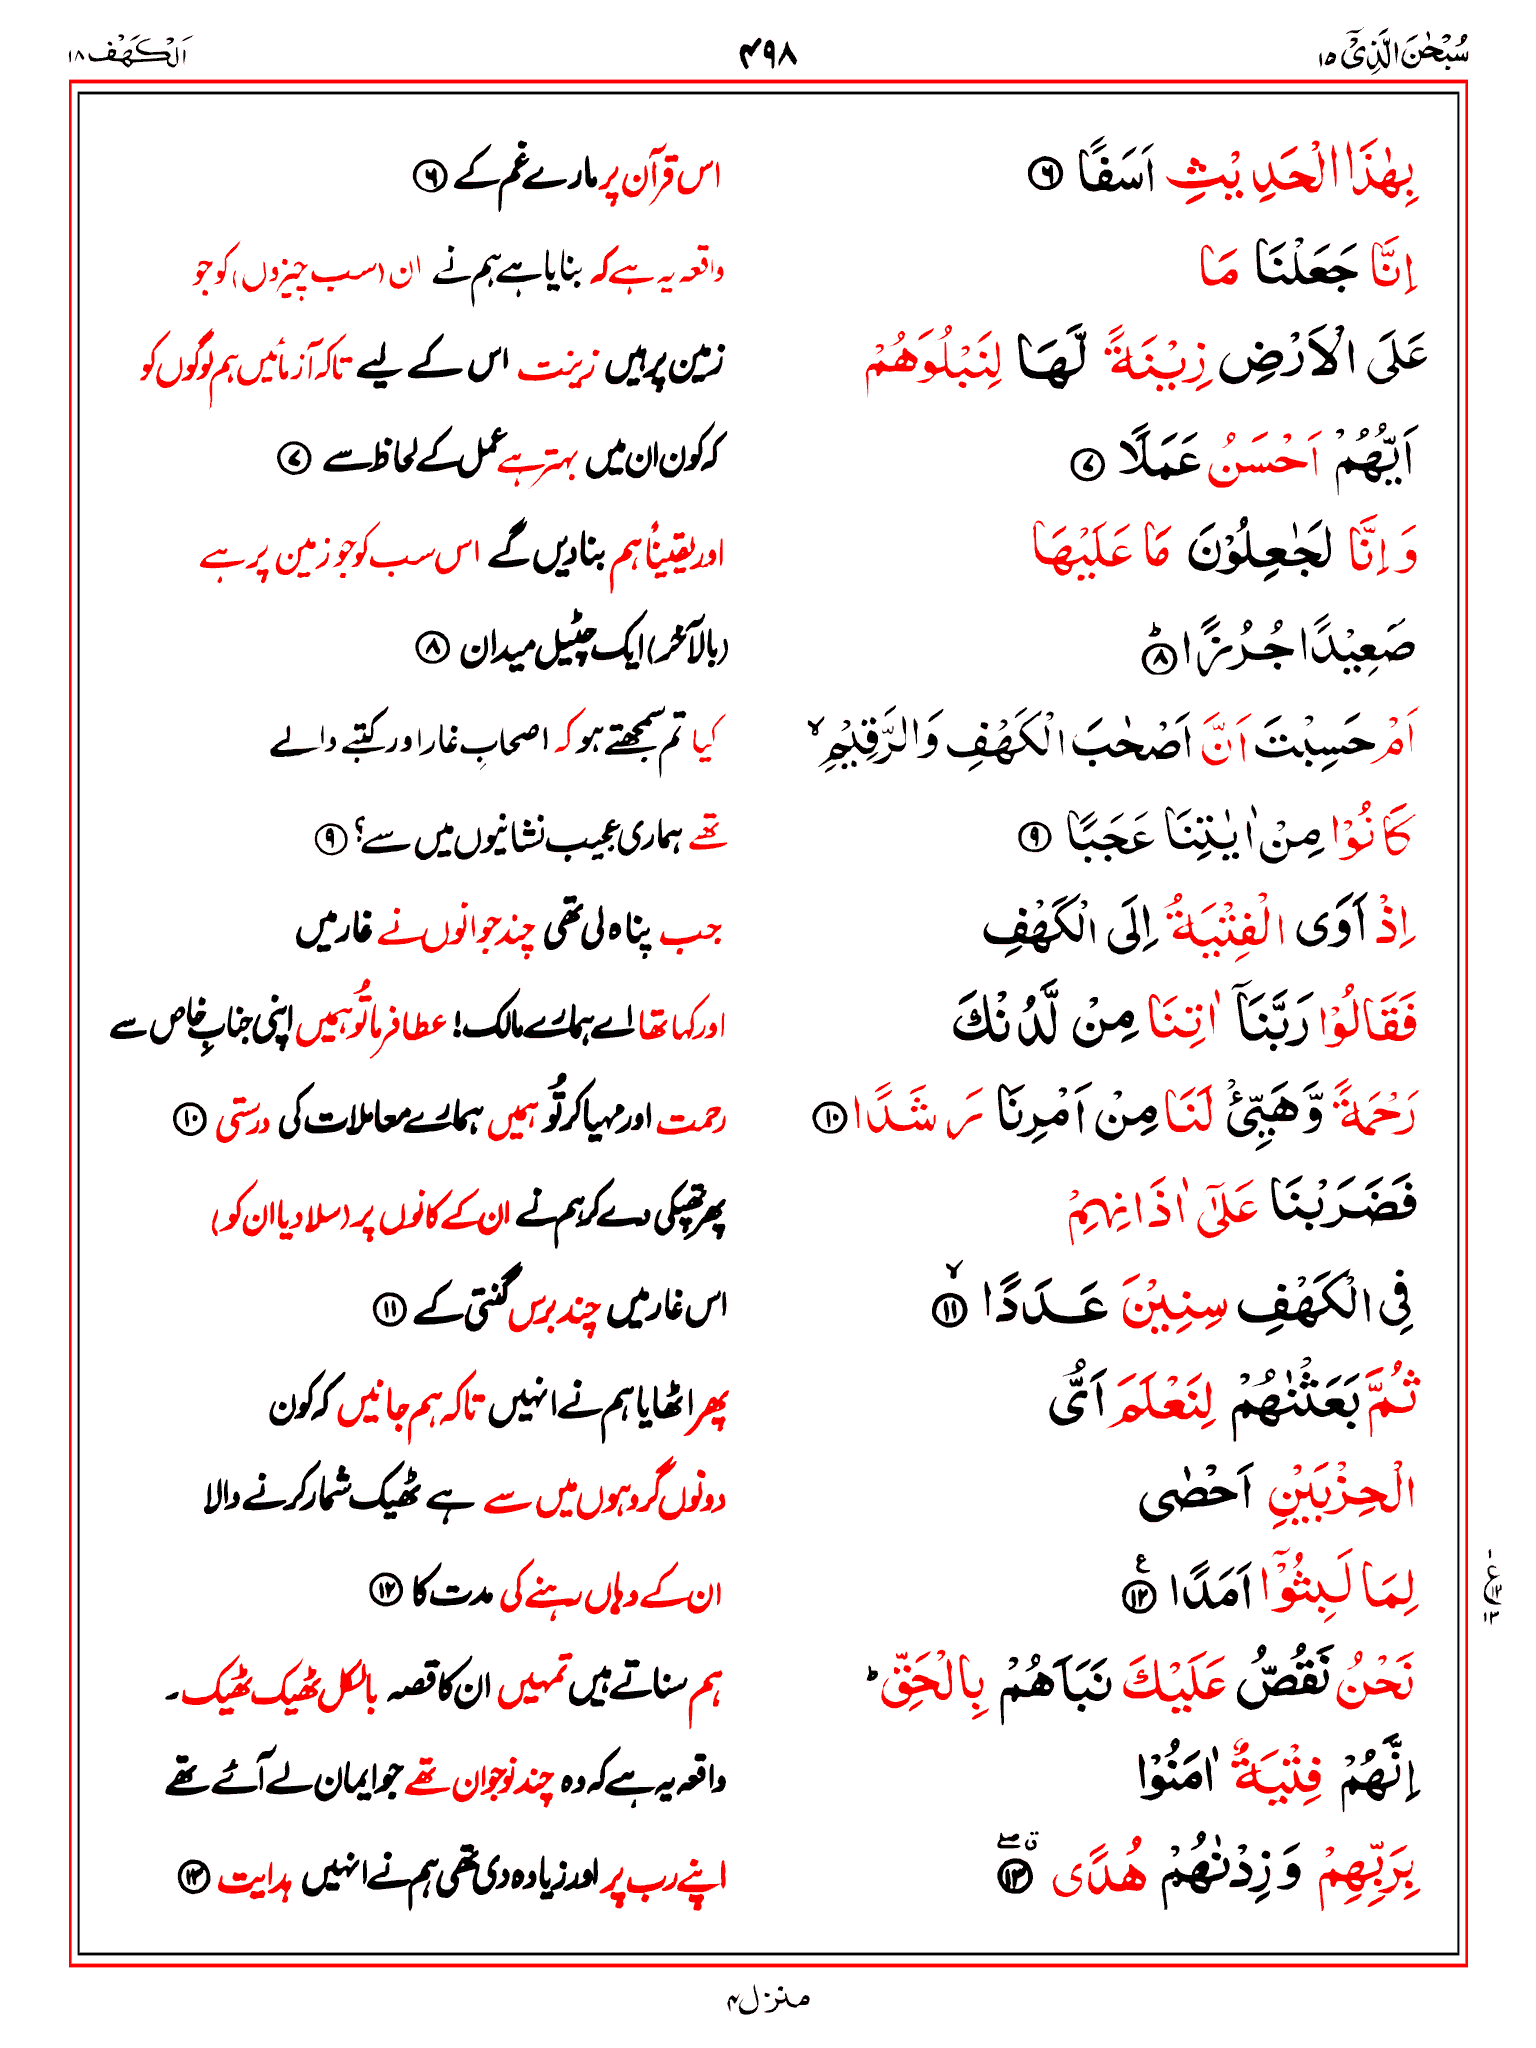 سُبْحٰنَ الَّذِیْۤ ۱۵
۴۹۸
اَلْکَهْف ۱۸
بِهٰذَا الْحَدِیْثِ اَسَفًا ۶
اس قرآن پر مارے غم کے ۶
اِنَّا جَعَلْنَا مَا
واقعہ یہ ہے کہ بنایا ہے ہم نے ان (سب چیزوں) کو جو
عَلَی الْاَرْضِ زِیْنَةً لَّهَا لِنَبْلُوَهُمْ
زمین پر ہیں زینت اس کے لیے تاکہ آزمائیں ہم لوگوں کو
اَیُّهُمْ اَحْسَنُ عَمَلًا ۷
کہ کون ان میں بہتر ہے عمل کے لحاظ سے ۷
وَ اِنَّا لَجٰعِلُوْنَ مَا عَلَیْهَا
اور یقیناً ہم بنا دیں گے اس سب کو جو زمین پر ہے
صَعِیْدًا جُرُزًا ۸ؕ
(بالآخر) ایک چٹیل میدان ۸
اَمْ حَسِبْتَ اَنَّ اَصْحٰبَ الْکَهْفِ وَالرَّقِیْمِ ۙ
کیا تم سمجھتے ہو کہ اصحابِ غار اور کتبے والے
کَانُوْا مِنْ اٰیٰتِنَا عَجَبًا ۹
تھے ہماری عجیب نشانیوں میں سے؟ ۹
اِذْ اَوَی الْفِتْیَةُ اِلَی الْکَهْفِ
جب پناہ لی تھی چند جوانوں نے غار میں
فَقَالُوْا رَبَّنَاۤ اٰتِنَا مِنْ لَّدُنْكَ
اور کہا تھا اے ہمارے مالک! عطا فرما تُو ہمیں اپنی جنابِ خاص سے
رَحْمَةً وَّهَیِّئْ لَنَا مِنْ اَمْرِنَا رَشَدًا ۱۰
رحمت اور مہیا کر تُو ہمیں ہمارے معاملات کی درستی ۱۰
فَضَرَبْنَا عَلٰۤی اٰذَانِهِمْ
پھر تھپکی دے کر ہم نے ان کے کانوں پر (سلا دیا ان کو)
فِی الْکَهْفِ سِنِیْنَ عَدَدًا ۱۱ۙ
اس غار میں چند برس گنتی کے ۱۱
ثُمَّ بَعَثْنٰهُمْ لِنَعْلَمَ اَیُّ
پھر اٹھایا ہم نے انہیں تاکہ ہم جانیں کہ کون
الْحِزْبَیْنِ اَحْصٰی
دونوں گروہوں میں سے ہے ٹھیک شمار کرنے والا
لِمَا لَبِثُوْۤا اَمَدًا ۱۲ع
ان کے وہاں رہنے کی مدت کا ۱۲
نَحْنُ نَقُصُّ عَلَیْكَ نَبَاَهُمْ بِالْحَقِّ ؕ
ہم سناتے ہیں تمہیں ان کا قصہ بالکل ٹھیک ٹھیک۔
اِنَّهُمْ فِتْیَةٌ اٰمَنُوْا
واقعہ یہ ہے کہ وہ چند نوجوان تھے جو ایمان لے آئے تھے
بِرَبِّهِمْ وَ زِدْنٰهُمْ هُدًی ۱۳
اپنے رب پر اور زیادہ دی تھی ہم نے انہیں ہدایت ۱۳
منزل ۴